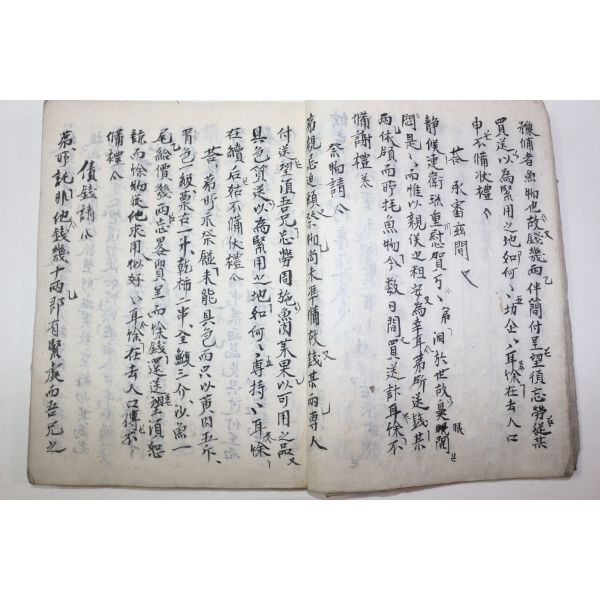 豫備者魚物也故錢幾兩伴簡付呈望須忘勞從某
買送以為緊用之地如何〻〻坊企〻〻耳餘在去人口
申不備狀禮
答 承審玆間
靜候連衛珎重慰賀万〻弟汨於世故臭眼開
悶是〻而惟以親候之粗安為幸耳弟所送錢某
兩依領而所托魚物今數日間買送計耳餘不
備謝禮
祭物請
弟親忌迫頭祭物尚未準備故錢某兩專人
付送望須吾兄忘勞周施魚肉菓果以可用之品
具色買送以為緊用之地如何〻〻專持〻〻耳餘
在續后姑不備狀禮
答 弟所示祭
未能具色而只以黃肉五斤
胃色一級票在一升乾柿一串全鰒三介以魚一
尾給價幾兩忘畧買呈而餘錢還送望須恕
諒而餘物從他求用似好〻〻耳餘在去人口傳不
備禮
債錢請
弟所託非他錢幾十兩即有緊處而吾兄之